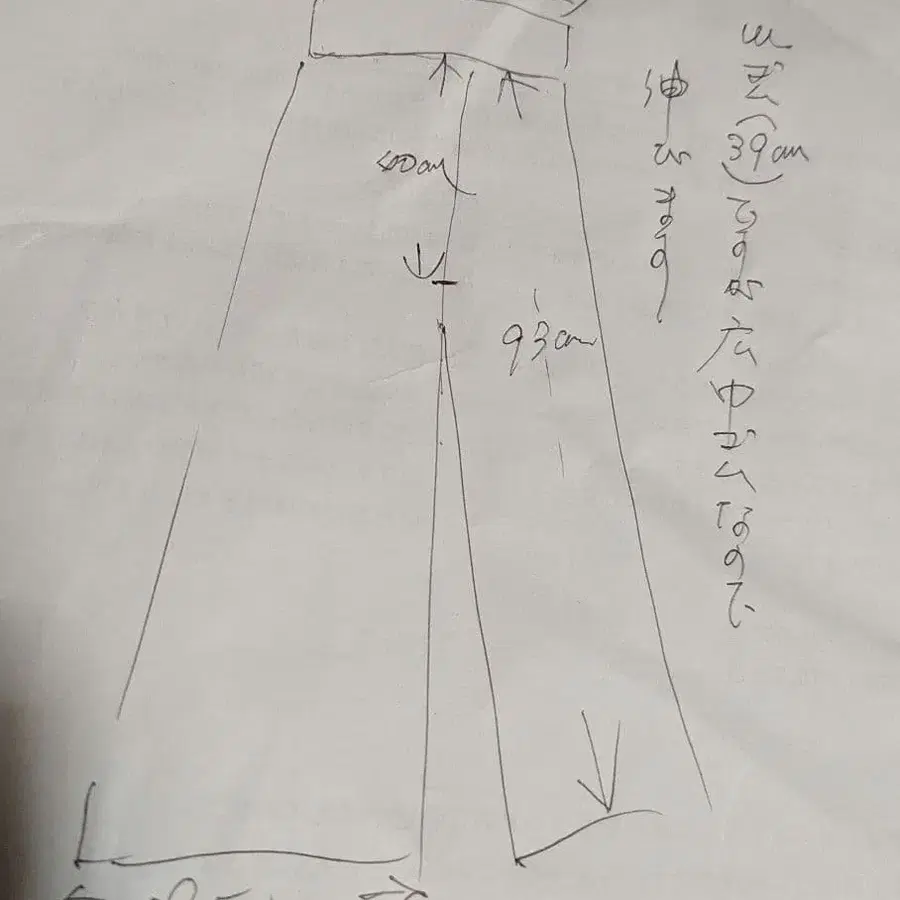 Wゴム(39cm)ですが広巾ゴムなので
伸びます
40cm
93cm